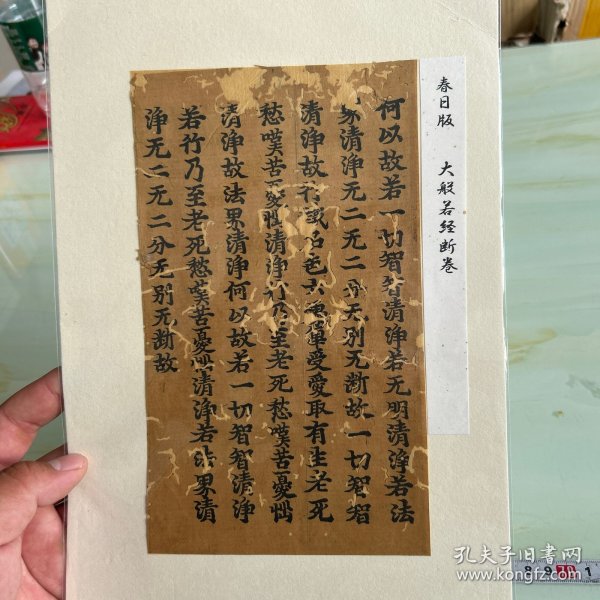 春日版 大般若经断卷
何以故若一切智智清淨若无明清淨若法
界清淨无二无二分无別无断故一切智智
清淨故行識名色六處觸受愛取有生老死
愁歎苦憂惱清淨行乃至老死愁歎苦憂惱
清淨故法界清淨何以故若一切智智清淨
若行乃至老死愁歎苦憂惱清淨若法界清
淨无二无二分无別无断故
8 9 10 1
孔夫子旧书网
www.kongfz.com